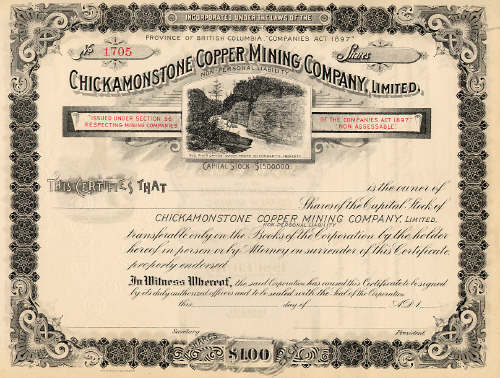 INCORPORATED UNDER THE LAWS OF THE
PROVINCE OF BRITISH COLUMBIA "COMPANIES ACT 1897"
No 1705
Shares
CHICKAMONSTONE COPPER MINING COMPANY, LIMITED.
NON-PERSONAL LIABILITY
"ISSUED UNDER SECTION 56
RESPECTING MINING COMPANIES
OF THE COMPANIES ACT 1897"
"NON ASSESSABLE"
CAPITAL STOCK $1500000.
THIS CERTIFIES THAT is the owner of
Shares of the Capital Stock of
CHICKAMONSTONE COPPER MINING COMPANY, LIMITED.
NON-PERSONAL LIABILITY
transferable only on the Books of the Corporation by the holder
hereof in person or by Attorney on surrender of this Certificate
properly endorsed.
In Witness Whereof, the said Corporation has caused this Certificate to be signed
by its duly authorized officers and to be sealed with the Seal of the Corporation
this day of A.D. 1
Secretary President
SHARES
$1.00